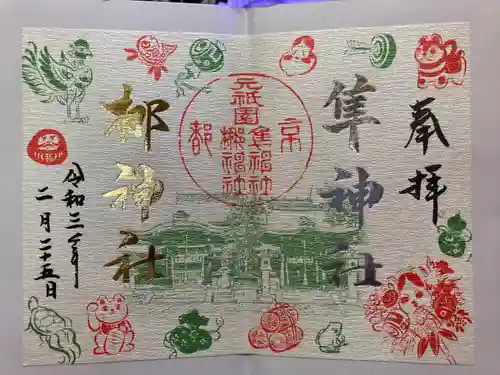 奉拝
隼神社
京都
元祇園
隼神社
梛神社
梛神社
令和三年
二月二十五日